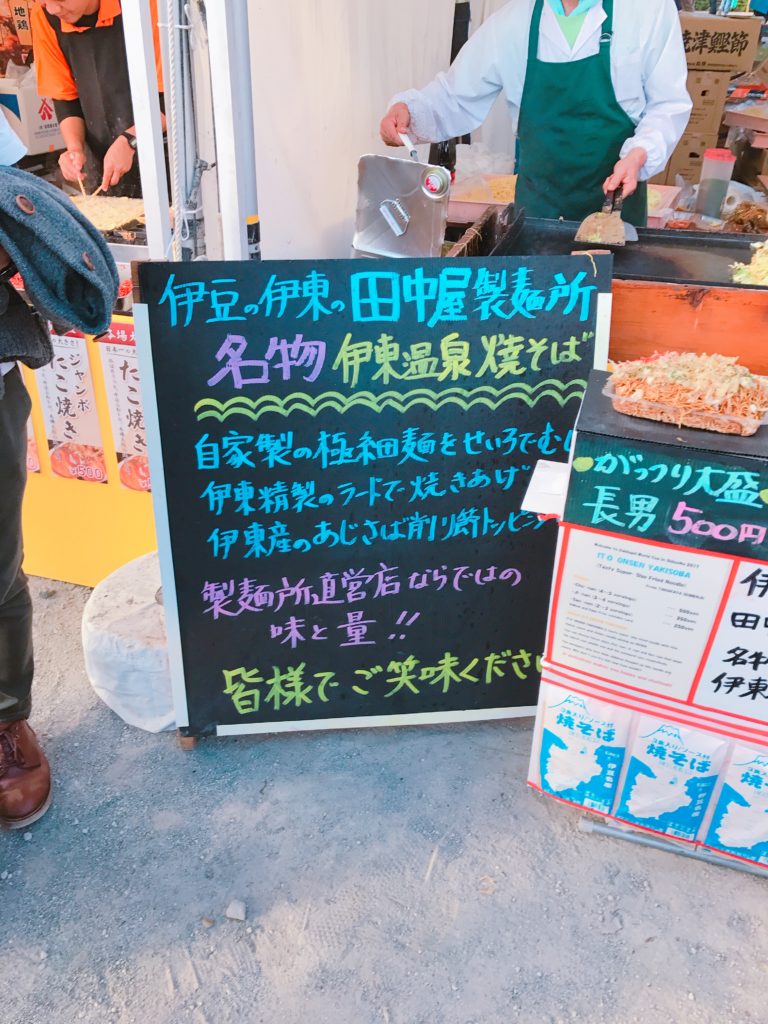 地鶏
焼津鰹節
伊豆の伊東の田中屋製麺所
名物 伊東温泉焼そば
自家製の極細麺をせいろでむし
伊東精製のラードで焼きあげ
伊東産のあじさば削り節トッピン
製麺所直営店ならではの
味と量!!
皆様でご笑味くださ
ジャンボ
たこ焼き
¥500
本場
たこ焼き
がっつり大盛
長男 500円
ITO ONSEN YAKISOBA
田中
名物
伊東
3食入り/ソース付
焼そば
3食入り/ソース付
焼そば
焼そば